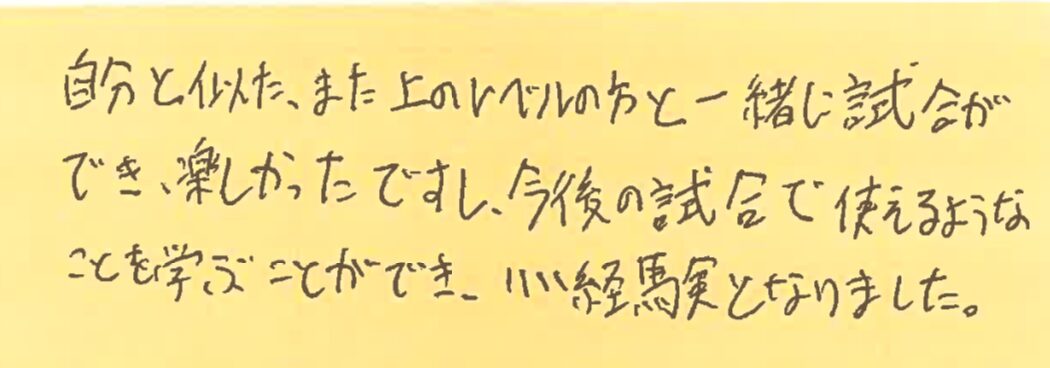 自分と似た、また上のレベルの方と一緒に試合が
でき、楽しかったですし、今後の試合で使えるような
ことを学ぶことができ、いい経験となりました。